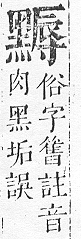 ⿰黑辱
俗字舊註音
肉黑垢誤